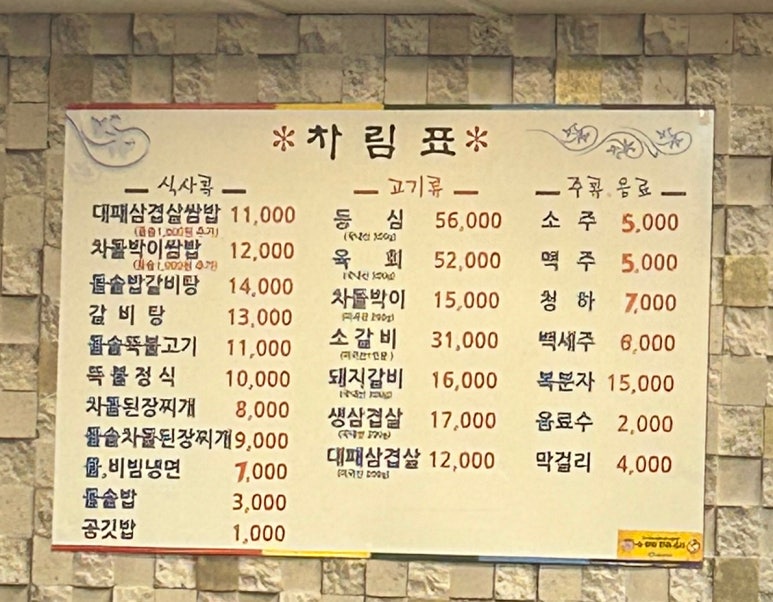 *차림표*
식사류
대패삼겹살쌈밥 11,000
차돌박이쌈밥 12,000
돌솥밥갈비탕 14,000
갈비탕 13,000
돌솥뚝불고기 11,000
뚝불정식 10,000
차돌된장찌개 8,000
돌솥차돌된장찌개 9,000
비빔냉면 7,000
돌솥밥 3,000
공깃밥 1,000
고기류
등심 56,000
육회 52,000
차돌박이 15,000
소갈비 31,000
돼지갈비 16,000
생삼겹살 17,000
대패삼겹살 12,000
주류 음료
소주 5,000
맥주 5,000
청하 7,000
백세주 6,000
복분자 15,000
음료수 2,000
막걸리 4,000